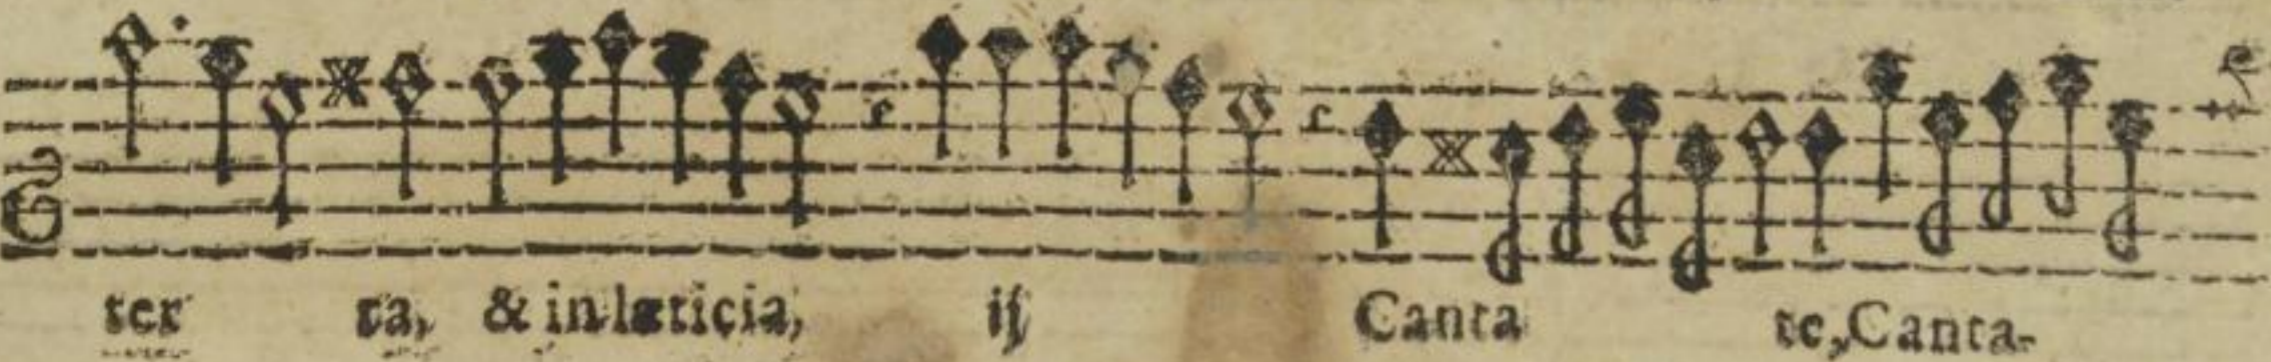 ter ra, & in lęticia, ij Canta te, Canta-